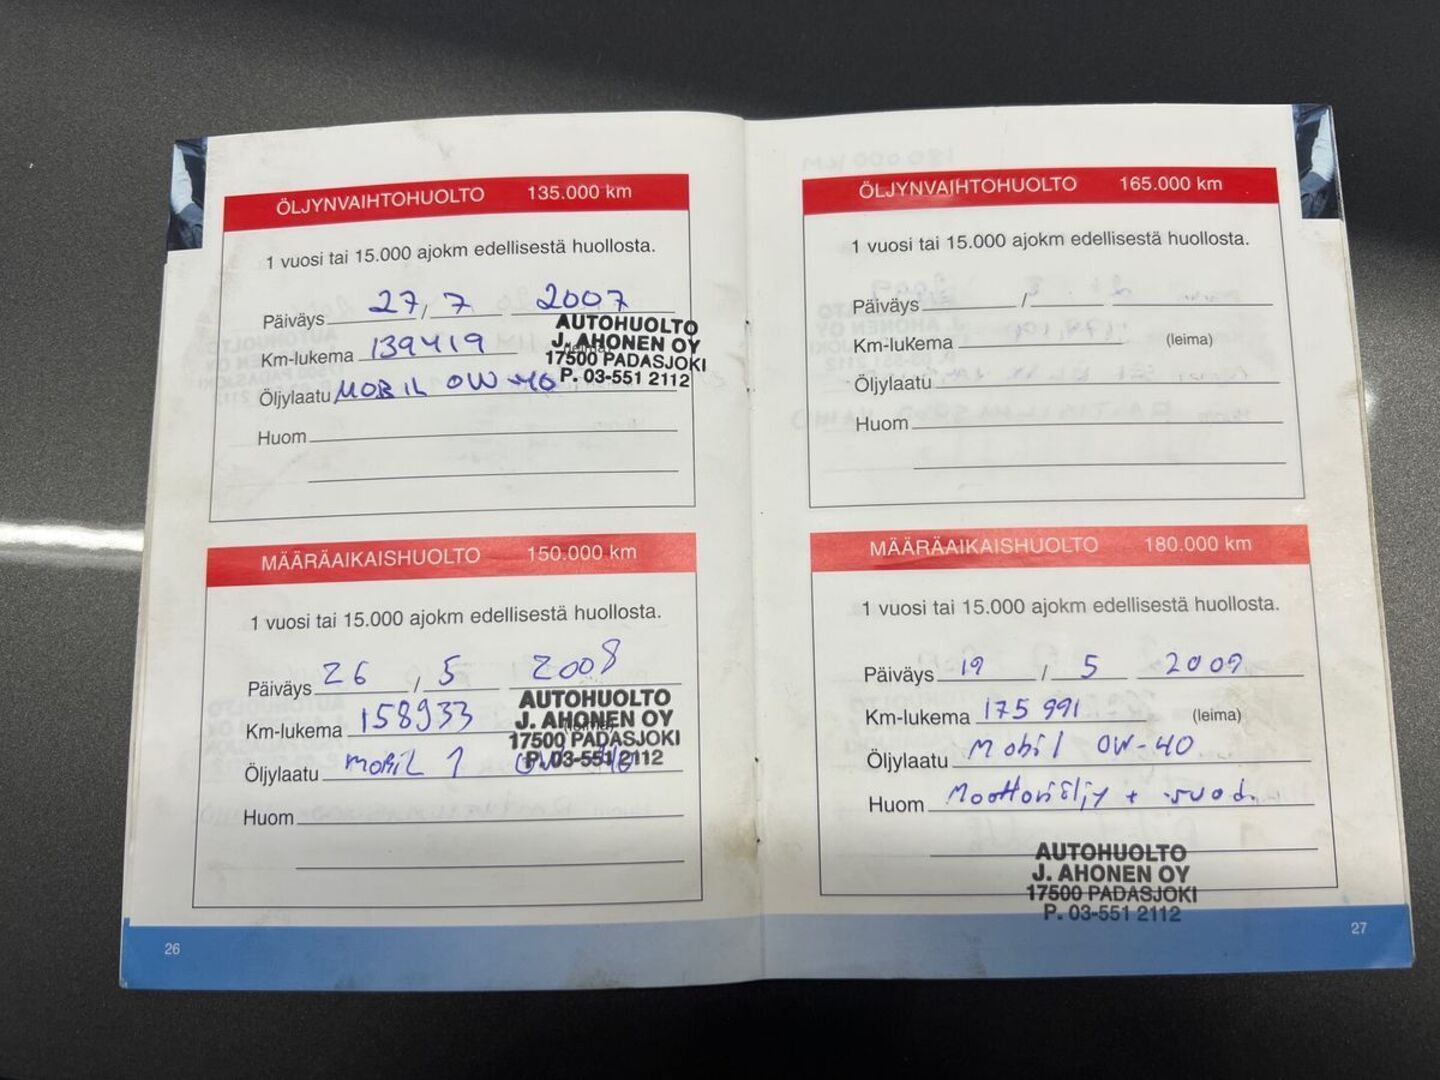 ÖLJYNVAIHTOHUOLTO 135.000 km
1 vuosi tai 15.000 ajokm edellisestä huollosta.
Päiväys 27 / 7 2007
Km-lukema 139419
Öljylaatu MOBIL 0W-40
Huom
AUTOHUOLTO
J. AHONEN OY
17500 PADASJOKI
P. 03-551 2112
MÄÄRÄAIKAISHUOLTO 150.000 km
1 vuosi tai 15.000 ajokm edellisestä huollosta.
Päiväys 26 / 5 2008
Km-lukema 158933
Öljylaatu MOBIL 1 0W-40
Huom
AUTOHUOLTO
J. AHONEN OY
17500 PADASJOKI
P. 03-551 2112
26
ÖLJYNVAIHTOHUOLTO 165.000 km
1 vuosi tai 15.000 ajokm edellisestä huollosta.
Päiväys /
Km-lukema (leima)
Öljylaatu
Huom
MÄÄRÄAIKAISHUOLTO 180.000 km
1 vuosi tai 15.000 ajokm edellisestä huollosta.
Päiväys 19 / 5 2009
Km-lukema 175 991 (leima)
Öljylaatu Mobil 0W-40
Huom Moottoriöljy + suod.
AUTOHUOLTO
J. AHONEN OY
17500 PADASJOKI
P. 03-551 2112
27